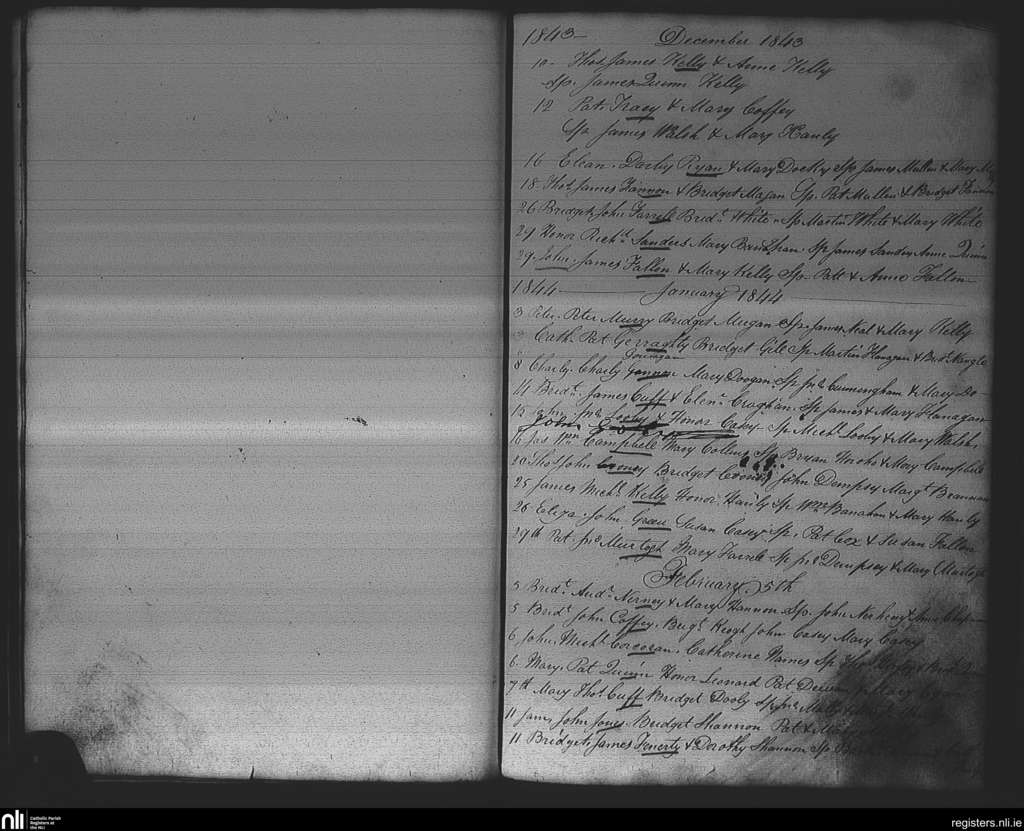 1843- December 1843
10- Thos James Kelly & Anne Kelly
Sp. James Quinn Kelly
12 Pat. Tracy & Mary Coffey
Sp James Walsh & Mary Hanly
16 Elean. Darby Ryan & Mary Dooly Sp James Mullen & Mary
18 Thos James Hannon & Bridget Magan Sp. Pat Mullen & Bridget
26 Bridget John Farrell Bridt White Sp Martin White & Mary White
27 Honor Richd Sanders Mary Sp James Sanders Anne Quinn
29. John. James Fallen & Mary Kelly Sp. Patt & Anne Fallen
1844 January 1844
3 Peter. Peter Murry Bridget Meegan Sp. James Neal & Mary Kelly
Cath. Pat Gerraghty Bridget Gill Sp Martin Flanagan & Bridt Nangle
8 Charly. Charly Mary Doogan Sp Jno Cunningham & Mary Do-
14 Bridt. James Cuff & Elenr Craghan. Sp James & Mary Flanagan
15 John. Jno Looby & Honor Casey Sp Michl Looby & Mary Welsh
John
16 Jas Wm Campbell Mary Collins Sp Bryan & Mary Campbell
20 Thos John Cooney Bridget John Dempsey Margt Brennan
25 James Michl Kelly Honor Hanly Sp Wm Banahan & Mary Hanly
26 Eliza. John Green Susan Casey Sp. Pat Cox & Susan Fallen
29th Pat Jno Murtogh Mary Farrell Sp Jno Dempsey & Mary Murtogh
February 5th
5 Bridt Andw Nerney & Mary Hannon Sp. John Nerheny & Anne
5 Bridt John Coffey. Brigt Keogh John Casey Mary Casey
6 John. Michl Corcoran. Catherine Sp
6. Mary. Pat Quinn Honor Leonard Pat
7th Mary Thos Cuff Bridget Dooly Sp Jno
11 James John Jones Bridget Shannon Pat & Mary
11. Bridget James Fenerty & Dorothy Shannon Sp
nli
Catholic Parish
Registers at
the NLI
registers.nli.ie